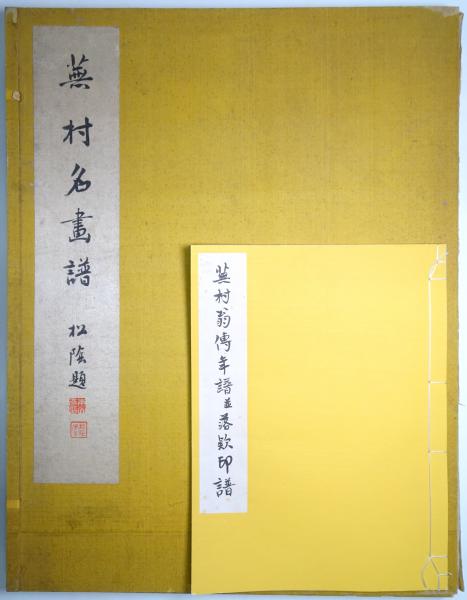 蕪村名畫譜
松陰題
蕪村翁傳年譜並落款印譜